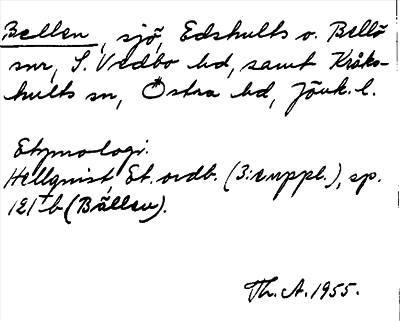 Bellen, sjö, Edshults o. Bellö
snr, S. Vedbo hd, samt Kråks-
hults sn, Östra hd, Jönk. l.
Etymologi.
Hellquist, Et. ordb. (3:e uppl.), sp.
121 b (Bällen).
Th. A. 1955.